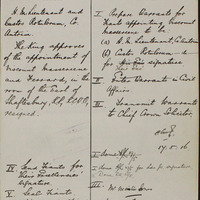 H.M. Lieutenant and
Custos Rotulorum, Co.
Antrim.
The King approves
of the appointment of
Viscount Massereene
and Ferrard, in the
room of the Earl of
Shaftesbury, K.P., G.C.V.O.,
resigned.
IV Send Fiants for
Their Excellencies'
signature.
V Seal Fiants
I Prepare Warrants for
Fiants appointing Viscount
Massereene to be
(a) H.M. Lieutenant, C. Antrim
(b) Custos Rotulorum do
for His
signature
II Enter Warrants in Civil
Affairs
III Transmit Warrants
to Chief Crown Solicitor.
17.5.16
III